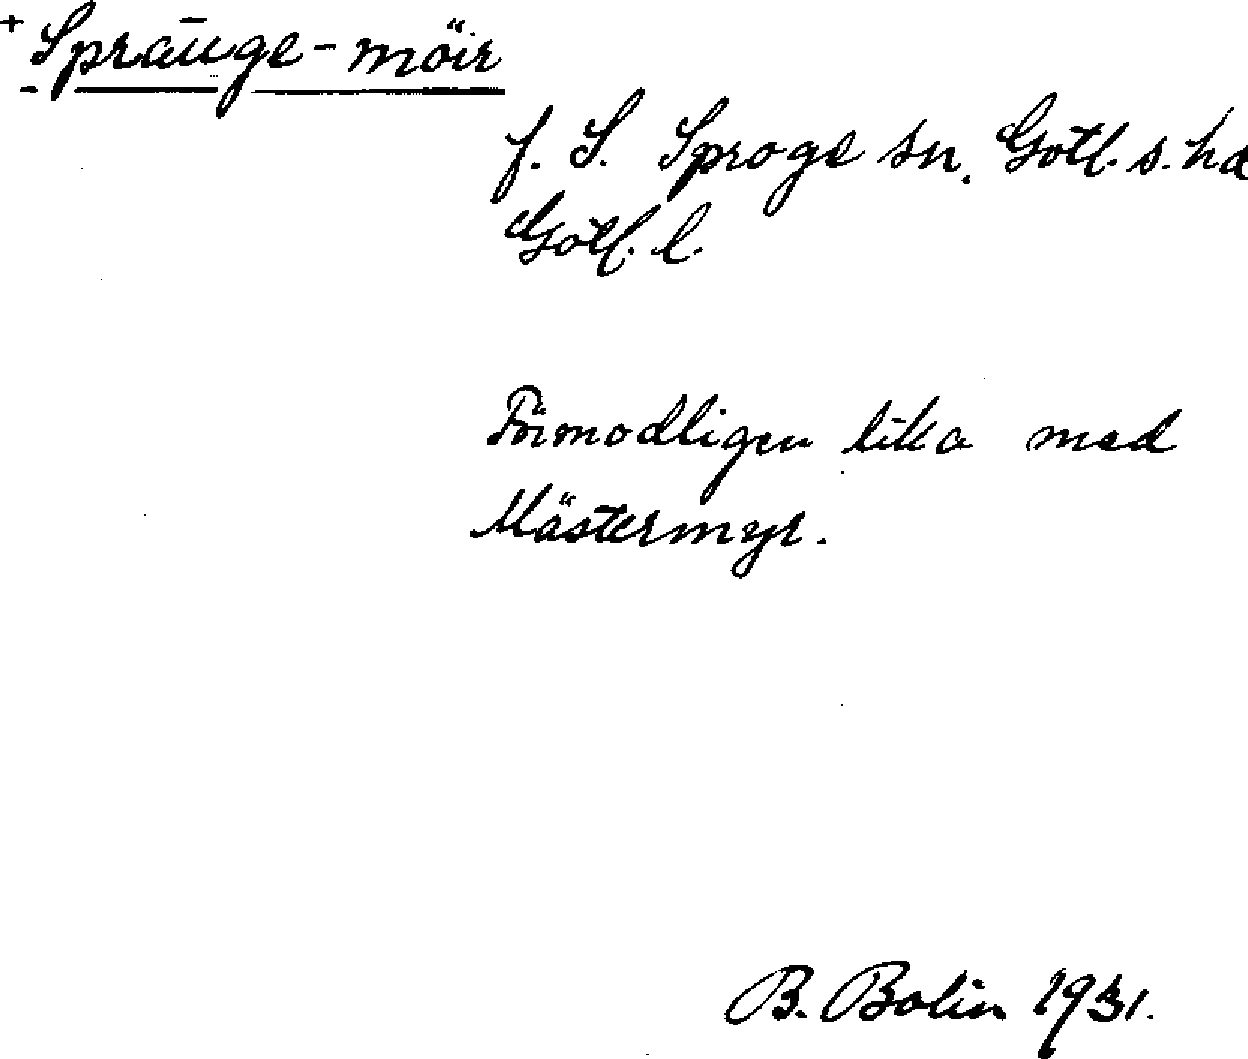 + Sprāuge-möir
f. S. Sproge sn. Gotl. s. hd
Gotl. l.
Förmodligen lika med
Mästermyr.
B. Bolin 1931.